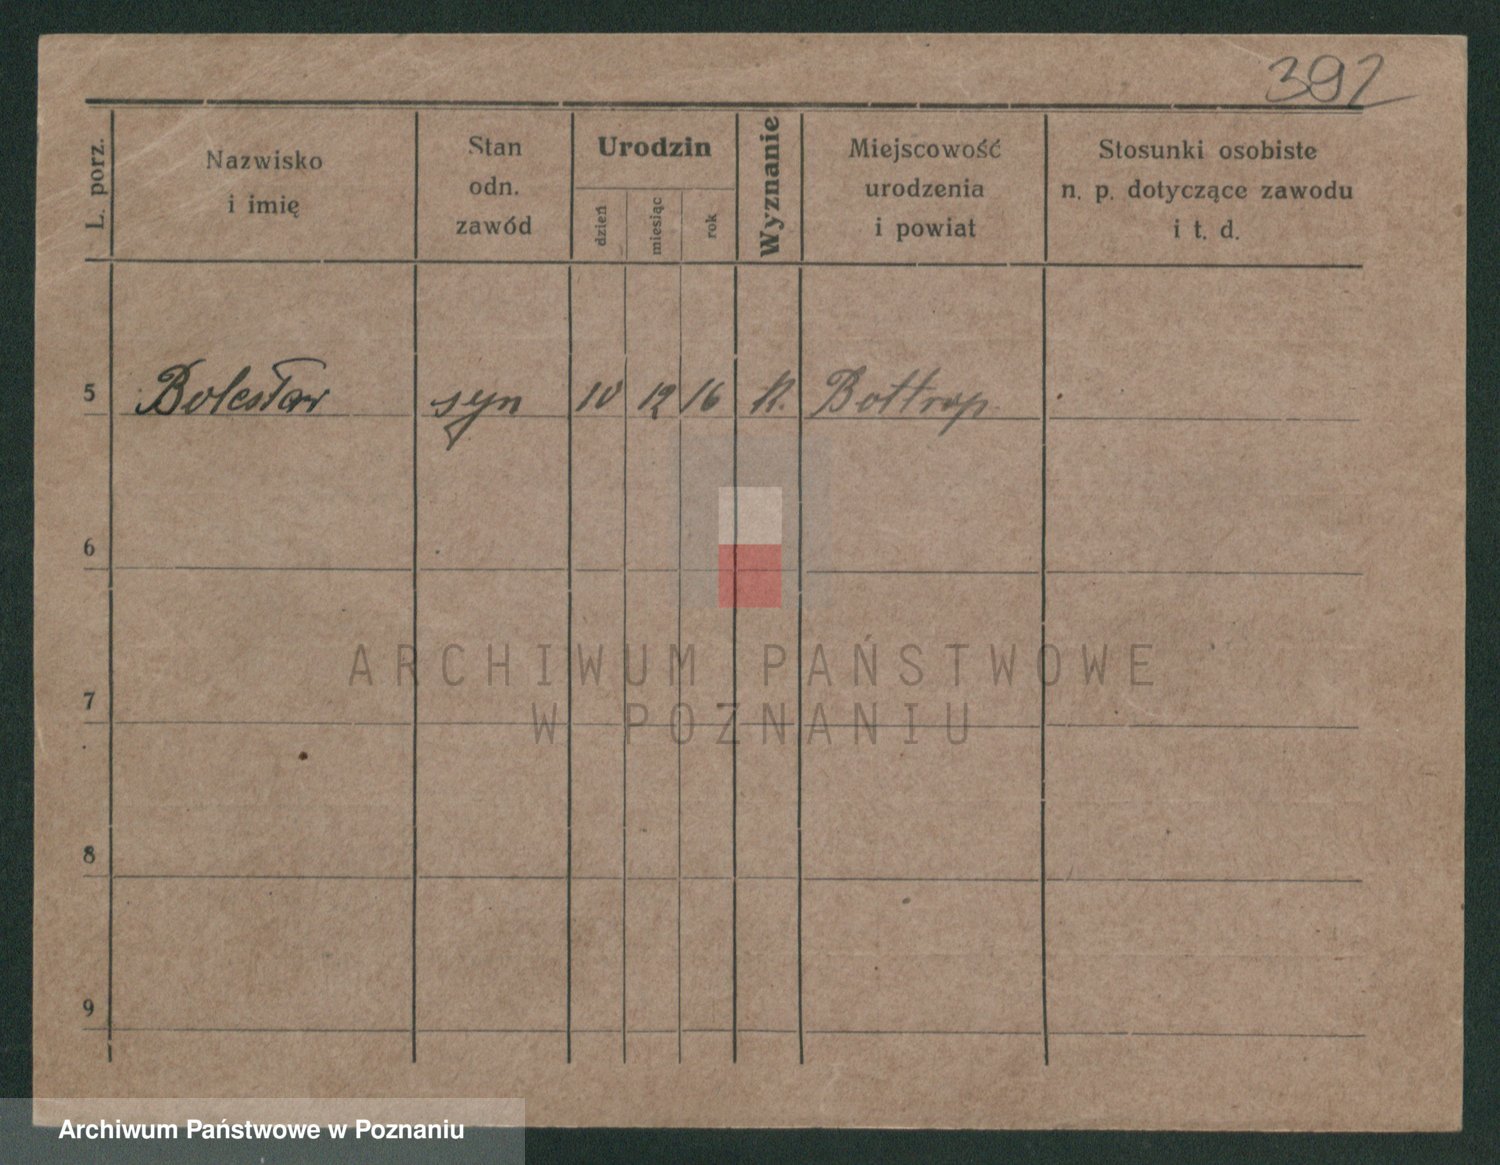 392
L. porz.
Nazwisko
i imię
Stan
odn.
zawód
Urodzin
dzień
miesiąc
rok
Wyznanie
Miejscowość
urodzenia
i powiat
Stosunki osobiste
n. p. dotyczące zawodu
i t. d.
5 Bolesław syn 10 12 16 k. Bottrop
6
7
8
9
ARCHIWUM PAŃSTWOWE
W POZNANIU
Archiwum Państwowe w Poznaniu